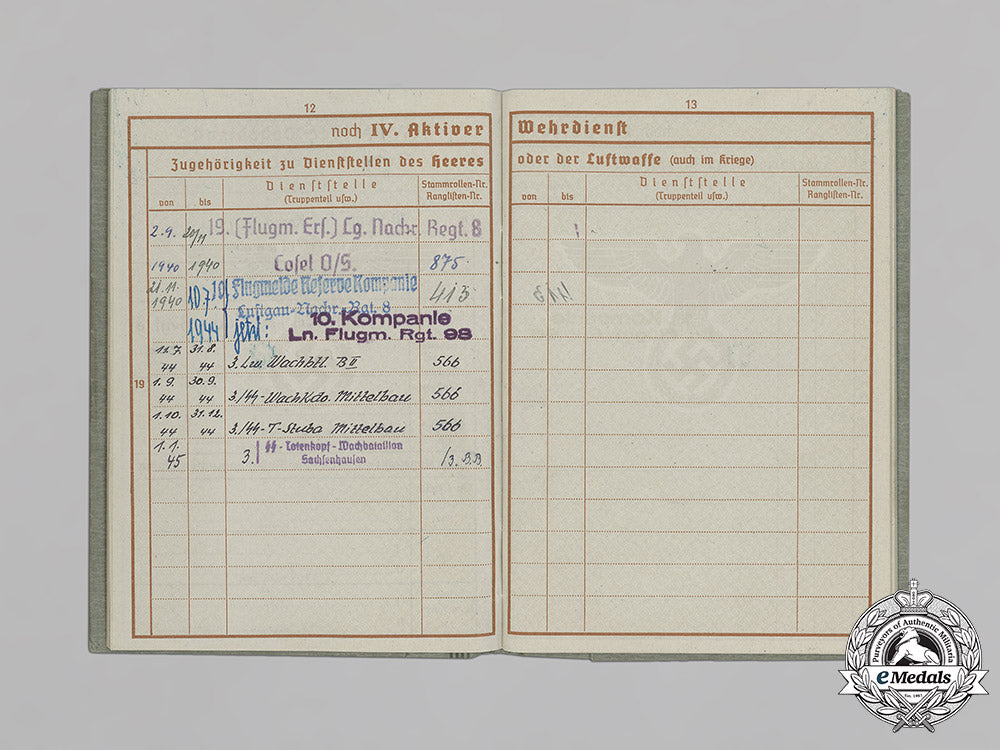 12
noch IV. Aktiver
Zugehörigkeit zu Dienststellen des Heeres
von
bis
Dienststelle
(Truppenteil usw.)
Stammrollen-Nr.
Ranglisten-Nr.
2.9. 19. (Flugm. Ers.) Lg. Nachr. Regt. 8
1940 1940 Cosel O/S. 875
21.11. 10.7. Flugmelde Reserve Kompanie
1940 413
Luftgau-Nachr. Rgt. 8
1944 jetzt: 10. Kompanie
Ln. Flugm. Rgt. 98
31.8.
44 44 3. Wachbtl. B II 566
19
1.9. 30.9.
44 44 3./SS-Wachkdo. Mittelbau 566
1.10. 31.12.
44 44 3./SS-T-Stuba Mittelbau 566
1.1.
45 3. SS-Totenkopf-Wachbataillon
Sachsenhausen /3. B.B.
13
Wehrdienst
oder der Luftwaffe (auch im Kriege)
von
bis
Dienststelle
(Truppenteil usw.)
Stammrollen-Nr.
Ranglisten-Nr.
Purveyors of Authentic Militaria
eMedals